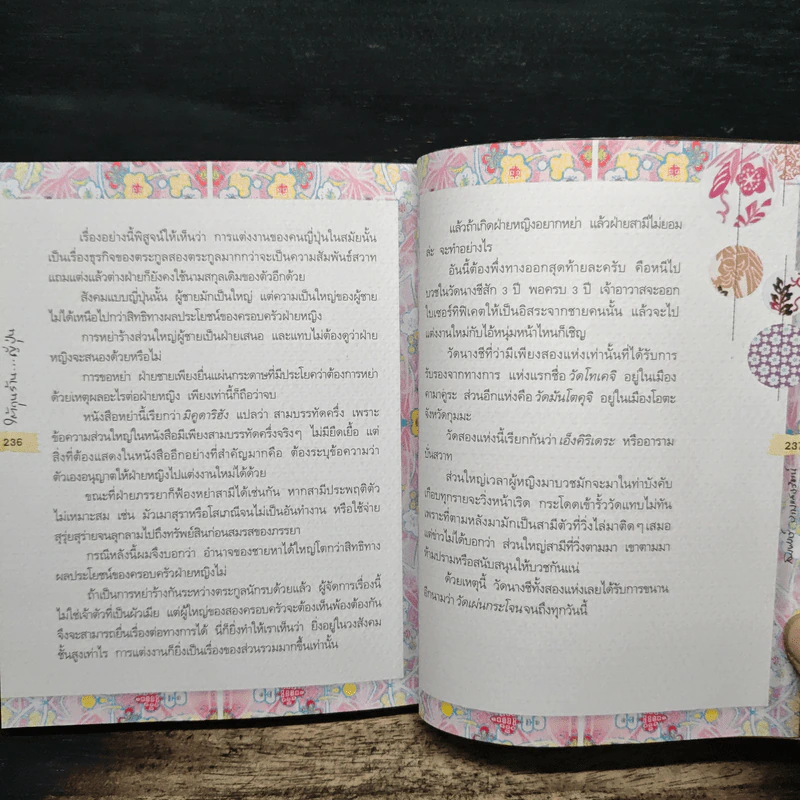 เรื่องอย่างนี้พิสูจน์ให้เห็นว่า การแต่งงานของคนญี่ปุ่นในสมัยนั้น
เป็นเรื่องธุรกิจของตระกูลสองตระกูลมากกว่าจะเป็นความสัมพันธ์สวาท
แถมแต่งแล้วต่างฝ่ายก็ยังคงใช้นามสกุลเดิมของตัวอีกด้วย
สังคมแบบญี่ปุ่นนั้น ผู้ชายมักเป็นใหญ่ แต่ความเป็นใหญ่ของผู้ชาย
ไม่ได้เหนือไปกว่าสิทธิทางผลประโยชน์ของครอบครัวฝ่ายหญิง
การหย่าร้างส่วนใหญ่ผู้ชายเป็นฝ่ายเสนอ และแทบไม่ต้องดูว่าฝ่าย
หญิงจะสนองด้วยหรือไม่
การขอหย่า ฝ่ายชายเพียงยื่นแผ่นกระดาษที่มีประโยคว่าต้องการหย่า
ด้วยเหตุผลอะไรต่อฝ่ายหญิง เพียงเท่านี้ก็ถือว่าจบ
หนังสือหย่านี้เรียกว่า มิคุดาริฮัง แปลว่า สามบรรทัดครึ่ง เพราะ
ข้อความส่วนใหญ่ในหนังสือมีเพียงสามบรรทัดครึ่งจริงๆ ไม่มียืดเยื้อ แต่
สิ่งที่ต้องแสดงในหนังสืออีกอย่างที่สำคัญมากคือ ต้องระบุข้อความว่า
ตัวเองอนุญาตให้ฝ่ายหญิงไปแต่งงานใหม่ได้ด้วย
ขณะที่ฝ่ายภรรยาก็ฟ้องหย่าสามีได้เช่นกัน หากสามีประพฤติตัว
ไม่เหมาะสม เช่น มัวเมาสุราหรือโสเภณีจนไม่เป็นอันทำงาน หรือใช้จ่าย
สุรุ่ยสุร่ายจนลุกลามไปถึงทรัพย์สินก่อนสมรสของภรรยา
กรณีหลังนี้ผมจึงบอกว่า อำนาจของชายหาได้ใหญ่โตกว่าสิทธิทาง
ผลประโยชน์ของครอบครัวฝ่ายหญิงไม่
ถ้าเป็นการหย่าร้างกันระหว่างตระกูลนักรบด้วยแล้ว ผู้จัดการเรื่องนี้
ไม่ใช่เจ้าตัวที่เป็นผัวเมีย แต่ผู้ใหญ่ของสองครอบครัวจะต้องเห็นพ้องต้องกัน
จึงจะสามารถยื่นเรื่องต่อทางการได้ นี่ก็ยิ่งทำให้เราเห็นว่า ยิ่งอยู่ในวงสังคม
ชั้นสูงเท่าไร การแต่งงานก็ยิ่งเป็นเรื่องของส่วนรวมมากขึ้นเท่านั้น
236
แล้วถ้าเกิดฝ่ายหญิงอยากหย่า แล้วฝ่ายสามีไม่ยอม
ล่ะ จะทำอย่างไร
อันนี้ต้องพึ่งทางออกสุดท้ายละครับ คือหนีไป
บวชในวัดนางชีสัก 3 ปี พอครบ 3 ปี เจ้าอาวาสจะออก
ใบเซอร์ทิฟิเคตให้เป็นอิสระจากชายคนนั้น แล้วจะไป
แต่งงานใหม่กับไอ้หนุ่มหน้าไหนก็เชิญ
วัดนางชีที่ว่ามีเพียงสองแห่งเท่านั้นที่ได้รับการ
รับรองจากทางการ แห่งแรกชื่อ วัดโทเคจิ อยู่ในเมือง
คามาคูระ ส่วนอีกแห่งคือ วัดมันโตคุจิ อยู่ในเมืองโอตะ
จังหวัดกุมมะ
วัดสองแห่งนี้เรียกกันว่า เอ็งคิริเดระ หรืออาราม
บั่นสวาท
ส่วนใหญ่เวลาผู้หญิงมาบวชมักจะมาในท่าบังคับ
เกือบทุกรายจะวิ่งหน้าเริด กระโดดเข้ารั้ววัดแทบไม่ทัน
เพราะที่ตามหลังมามักเป็นสามีตัวที่วิ่งไล่มาติดๆ เสมอ
แต่ข่าวไม่ได้บอกว่า ส่วนใหญ่สามีที่วิ่งตามมา เขาตามมา
ห้ามปรามหรือสนับสนุนให้บวชกันแน่
ด้วยเหตุนี้ วัดนางชีทั้งสองแห่งเลยได้รับการขนาน
อีกนามว่า วัดเผ่นกระโจน จนถึงทุกวันนี้
237